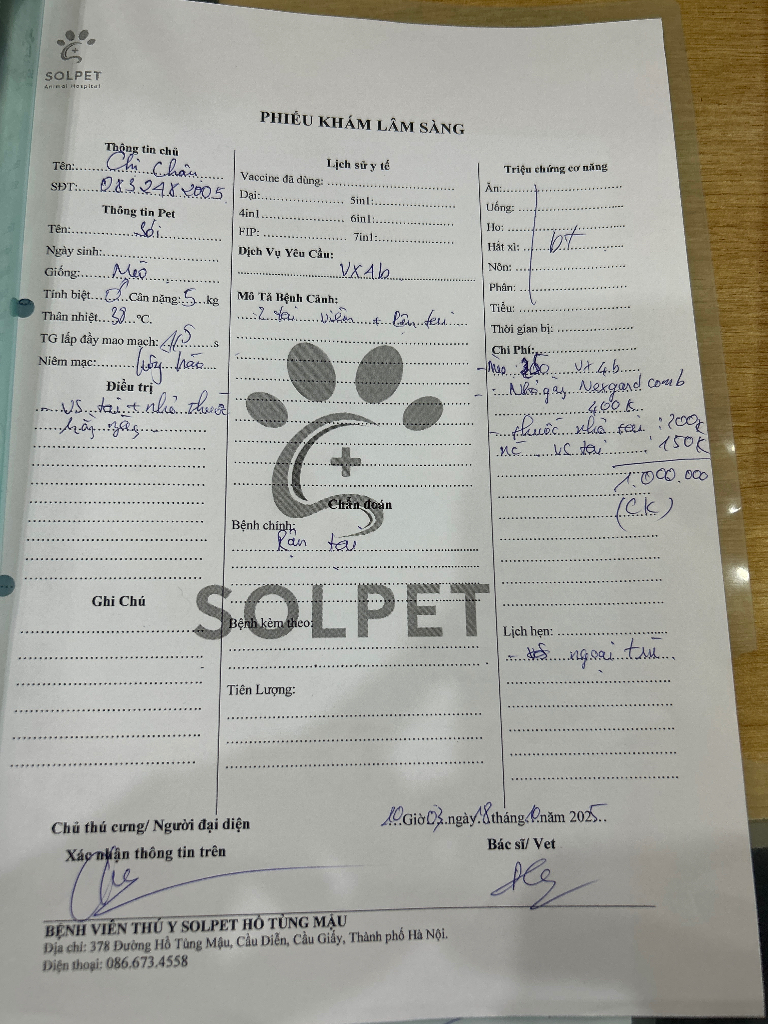 SOLPET
Animal Hospital
PHIẾU KHÁM LÂM SÀNG
Thông tin chủ
Tên: Chị Châu
SĐT: 083 248 2005
Thông tin Pet
Tên: Sói
Ngày sinh:
Giống: Mèo
Tính biệt ♂ Cân nặng: 5 kg
Thân nhiệt 38 °C.
TG lấp đầy mao mạch: s
Niêm mạc: hồng hào
Điều trị
- VS tai + nhỏ thuốc
hàng ngày
Ghi Chú
Lịch sử y tế
Vaccine đã dùng:
Dại: 5in1:
4in1 6in1:
FIP: 7in1:
Dịch Vụ Yêu Cầu:
VX4b
Mô Tả Bệnh Cảnh:
2 tai viêm + rận tai
Chẩn đoán
Bệnh chính:
Rận tai
SOLPET
Bệnh kèm theo:
Tiên Lượng:
Triệu chứng cơ năng
Ăn:
Uống:
Ho:
Hắt xì: bt
Nôn:
Phân:
Tiểu:
Thời gian bị:
Chi Phí:
- Mèo: VX 4b
- Nhỏ gáy Nexgard comb
400k
- thuốc nhỏ tai : 200k
VS tai : 150k
1.000.000
(CK)
Lịch hẹn:
- ngoại trú
10 Giờ 03 ngày 18 tháng 10 năm 2025
Chủ thú cưng/ Người đại diện
Xác nhận thông tin trên
Bác sĩ/ Vet
BỆNH VIỆN THÚ Y SOLPET HỒ TÙNG MẬU
Địa chỉ: 378 Đường Hồ Tùng Mậu, Cầu Diễn, Cầu Giấy, Thành phố Hà Nội.
Điện thoại: 086.673.4558